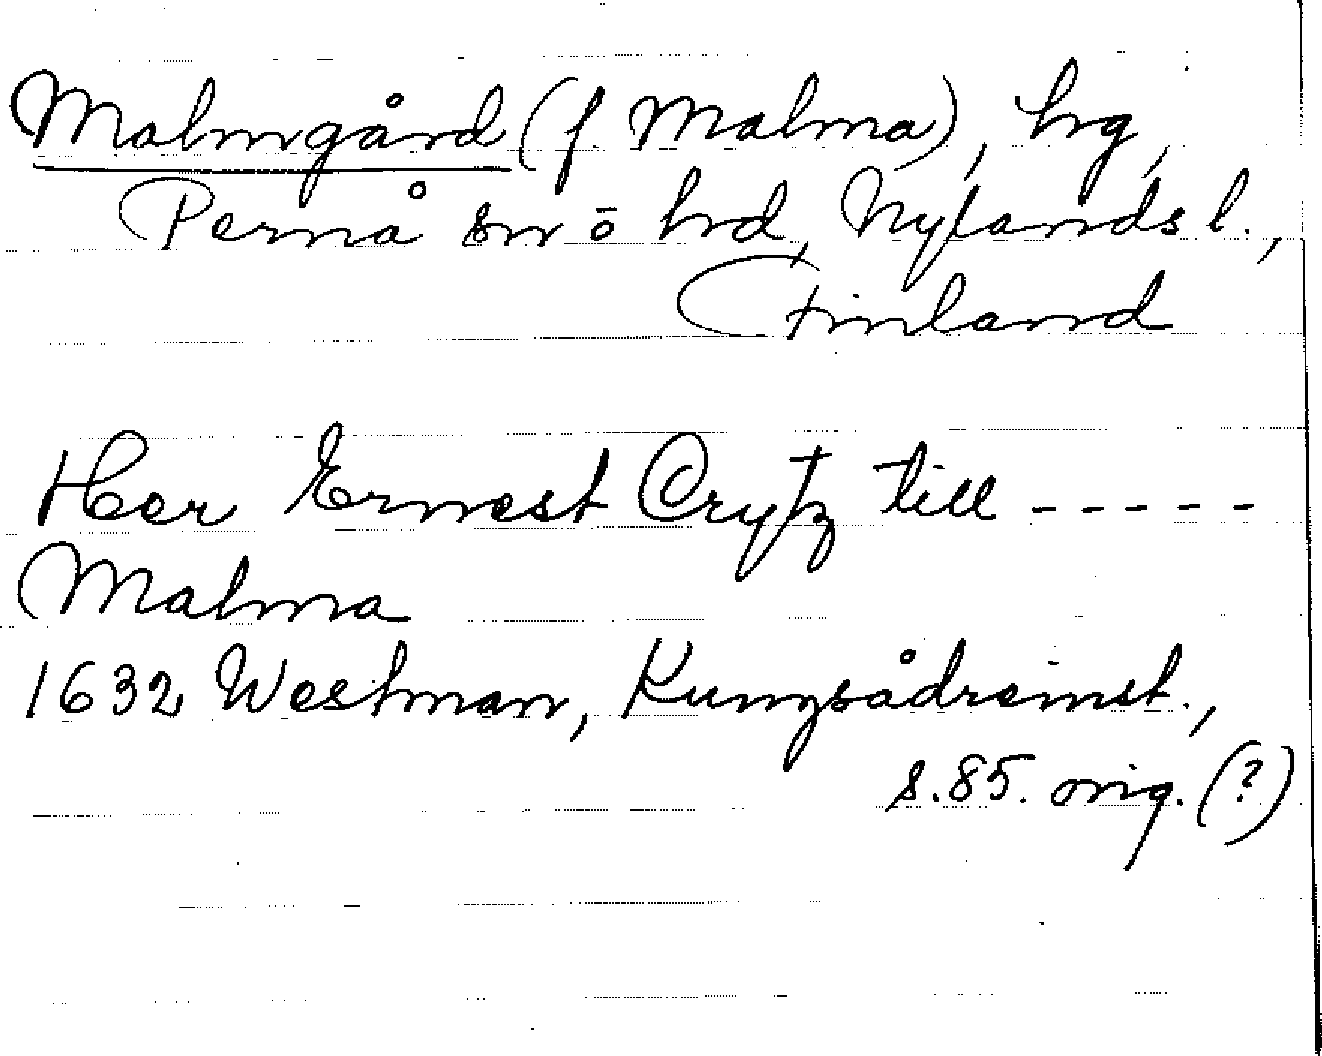 Malmgård (f. Malma), hrg,
Pernå sn ō hrd, Nylands l.,
Finland
Her Ernest Crytz till -----
Malma
1632 Westman, Kungsådreinst.,
s. 85. orig. (?)